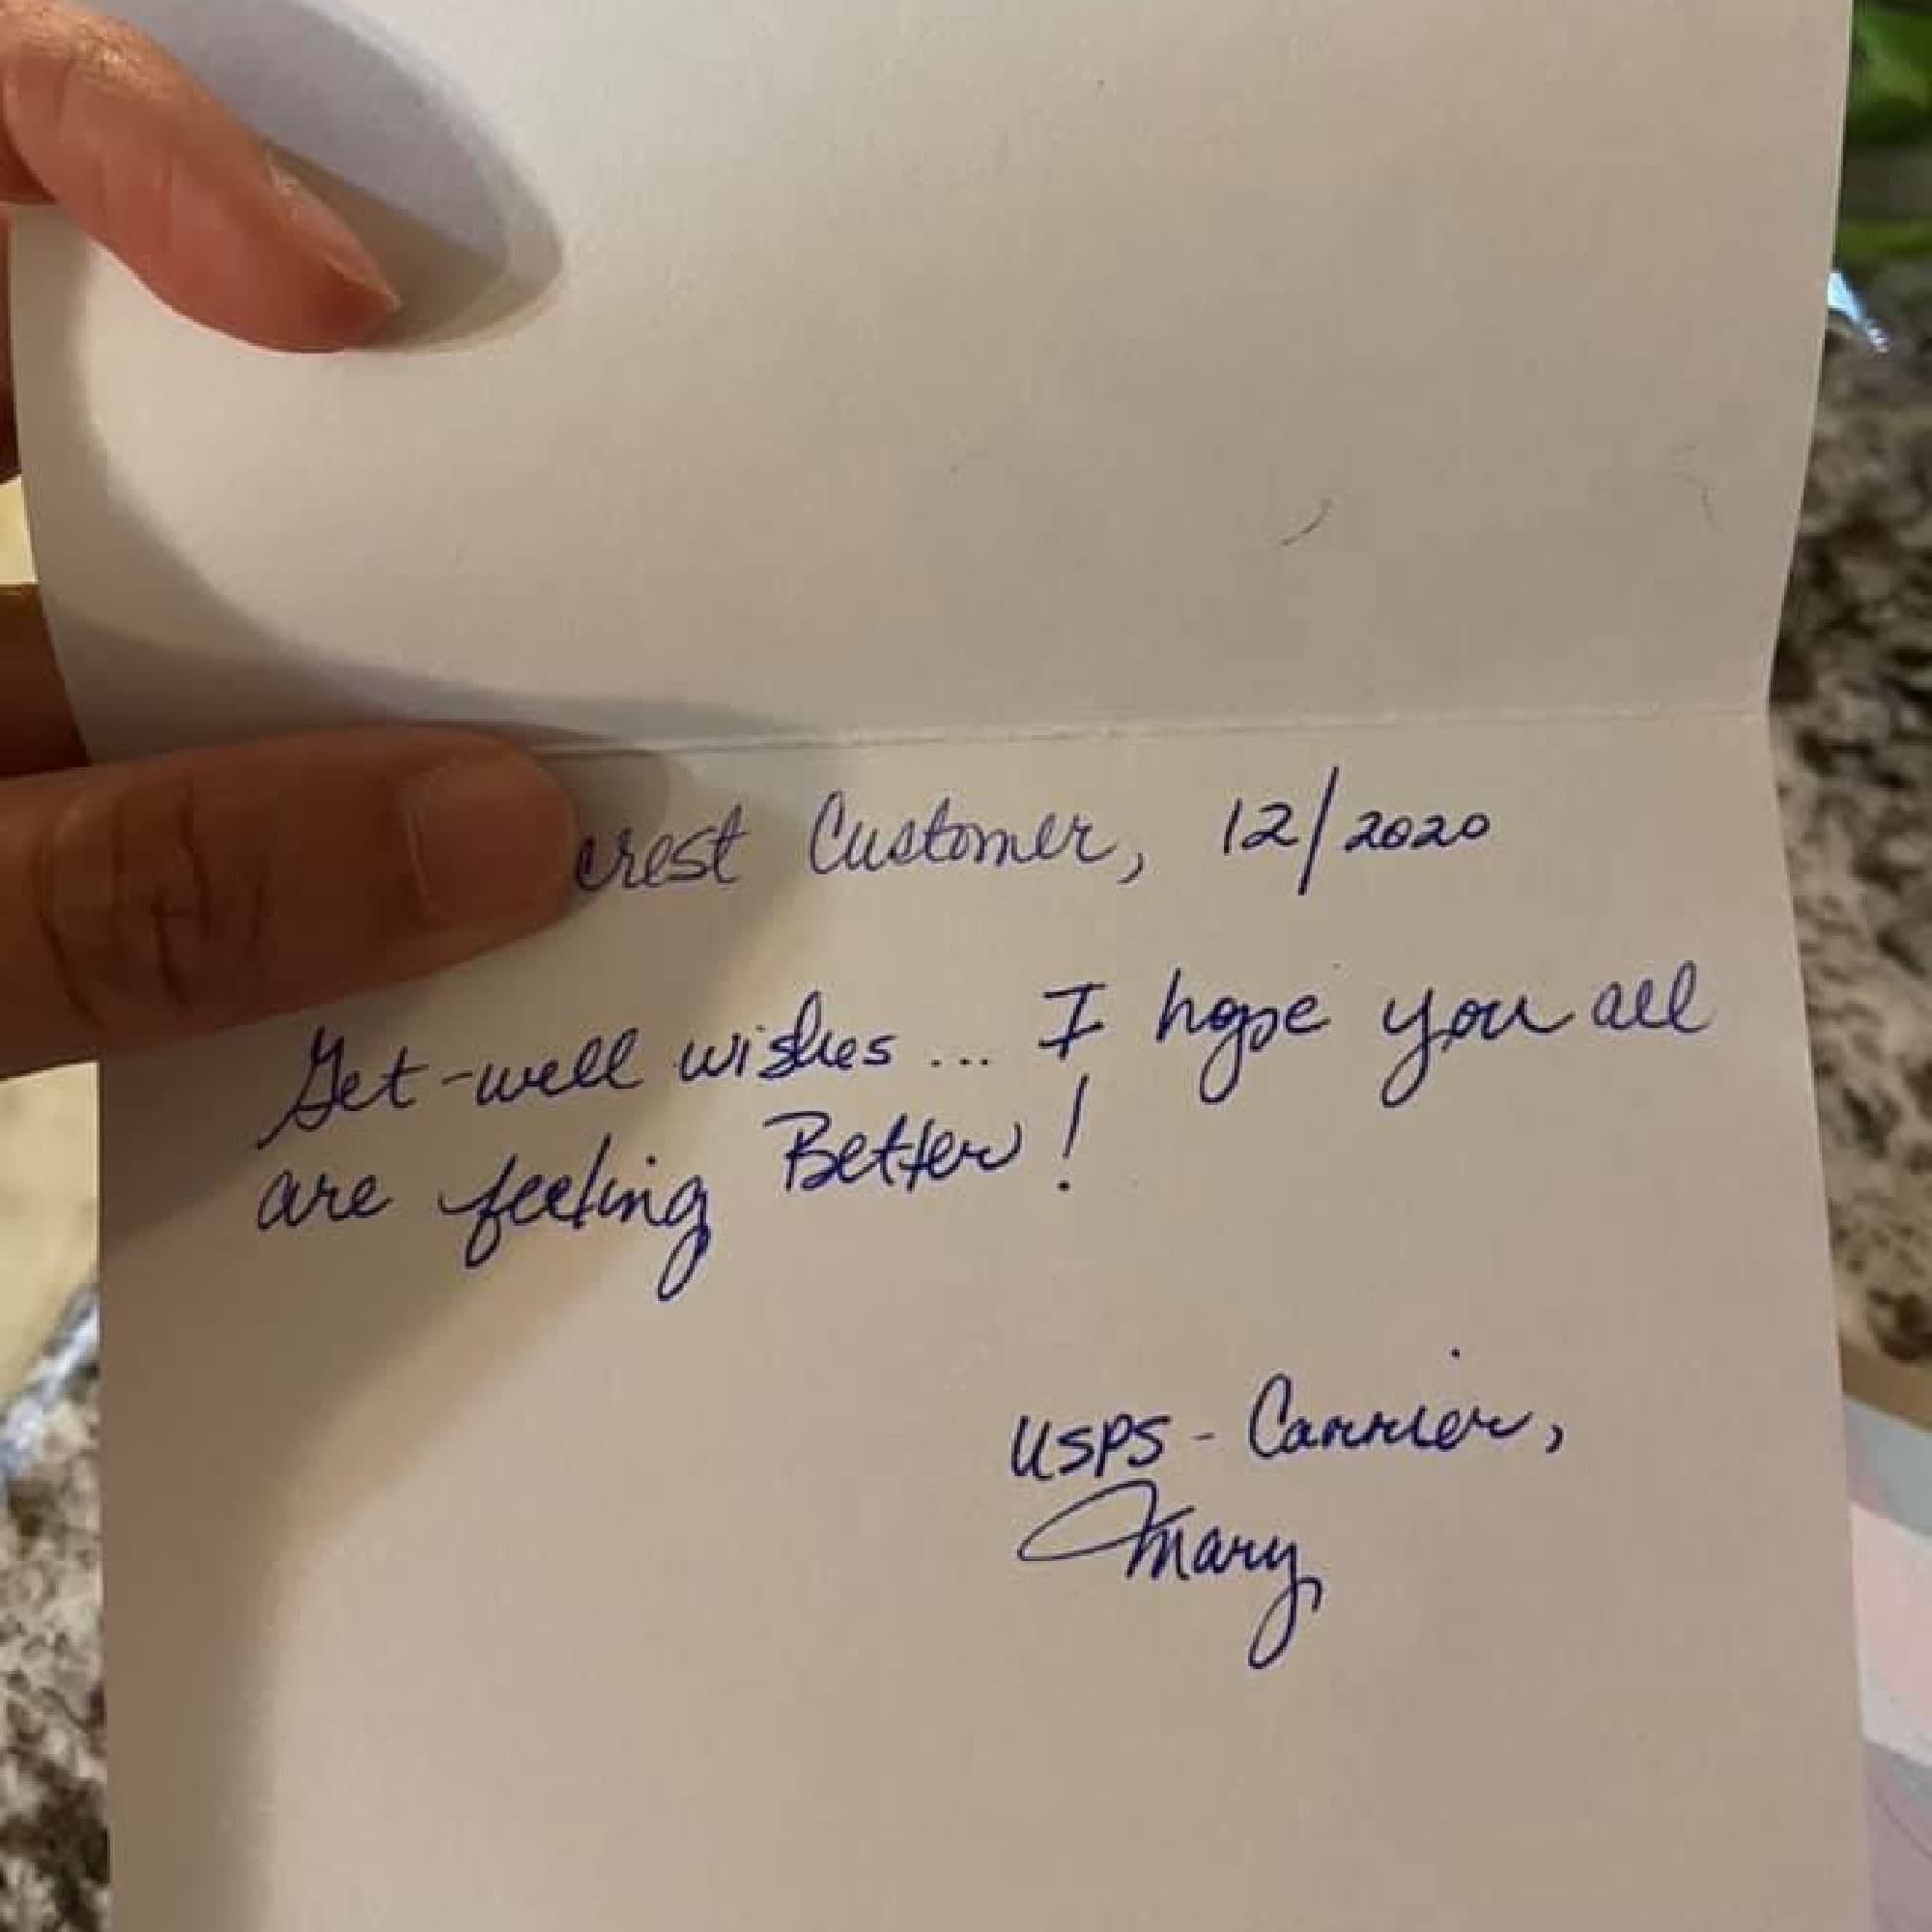 crest Customer, 12/2020
Get-well wishes... I hope you all
are feeling Better!
USPS - Carrier,
Mary